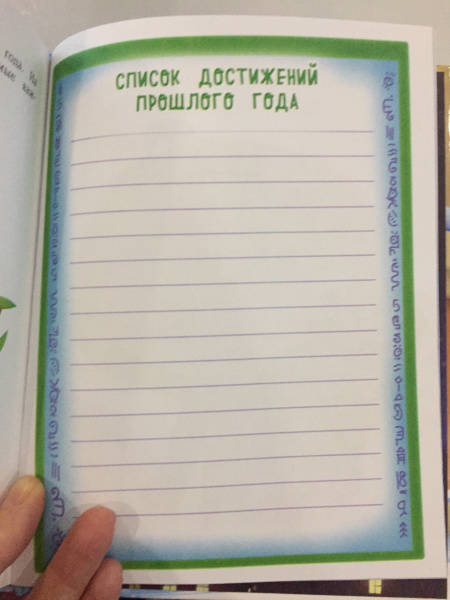 года. На
СПИСОК ДОСТИЖЕНИЙ
ПРОШЛОГО ГОДА